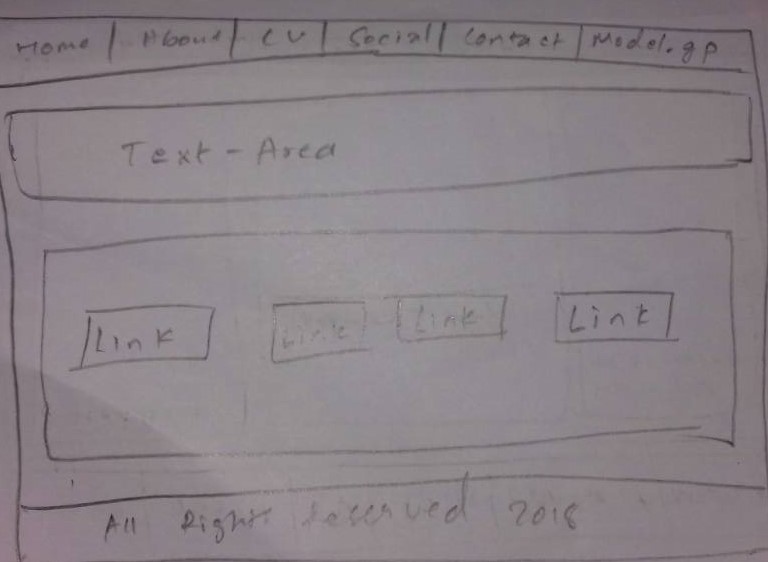 Home | About | CV | Social | Contact | Model.gp
Text-Area
Link Link Link Link
All Rights Reserved 2018